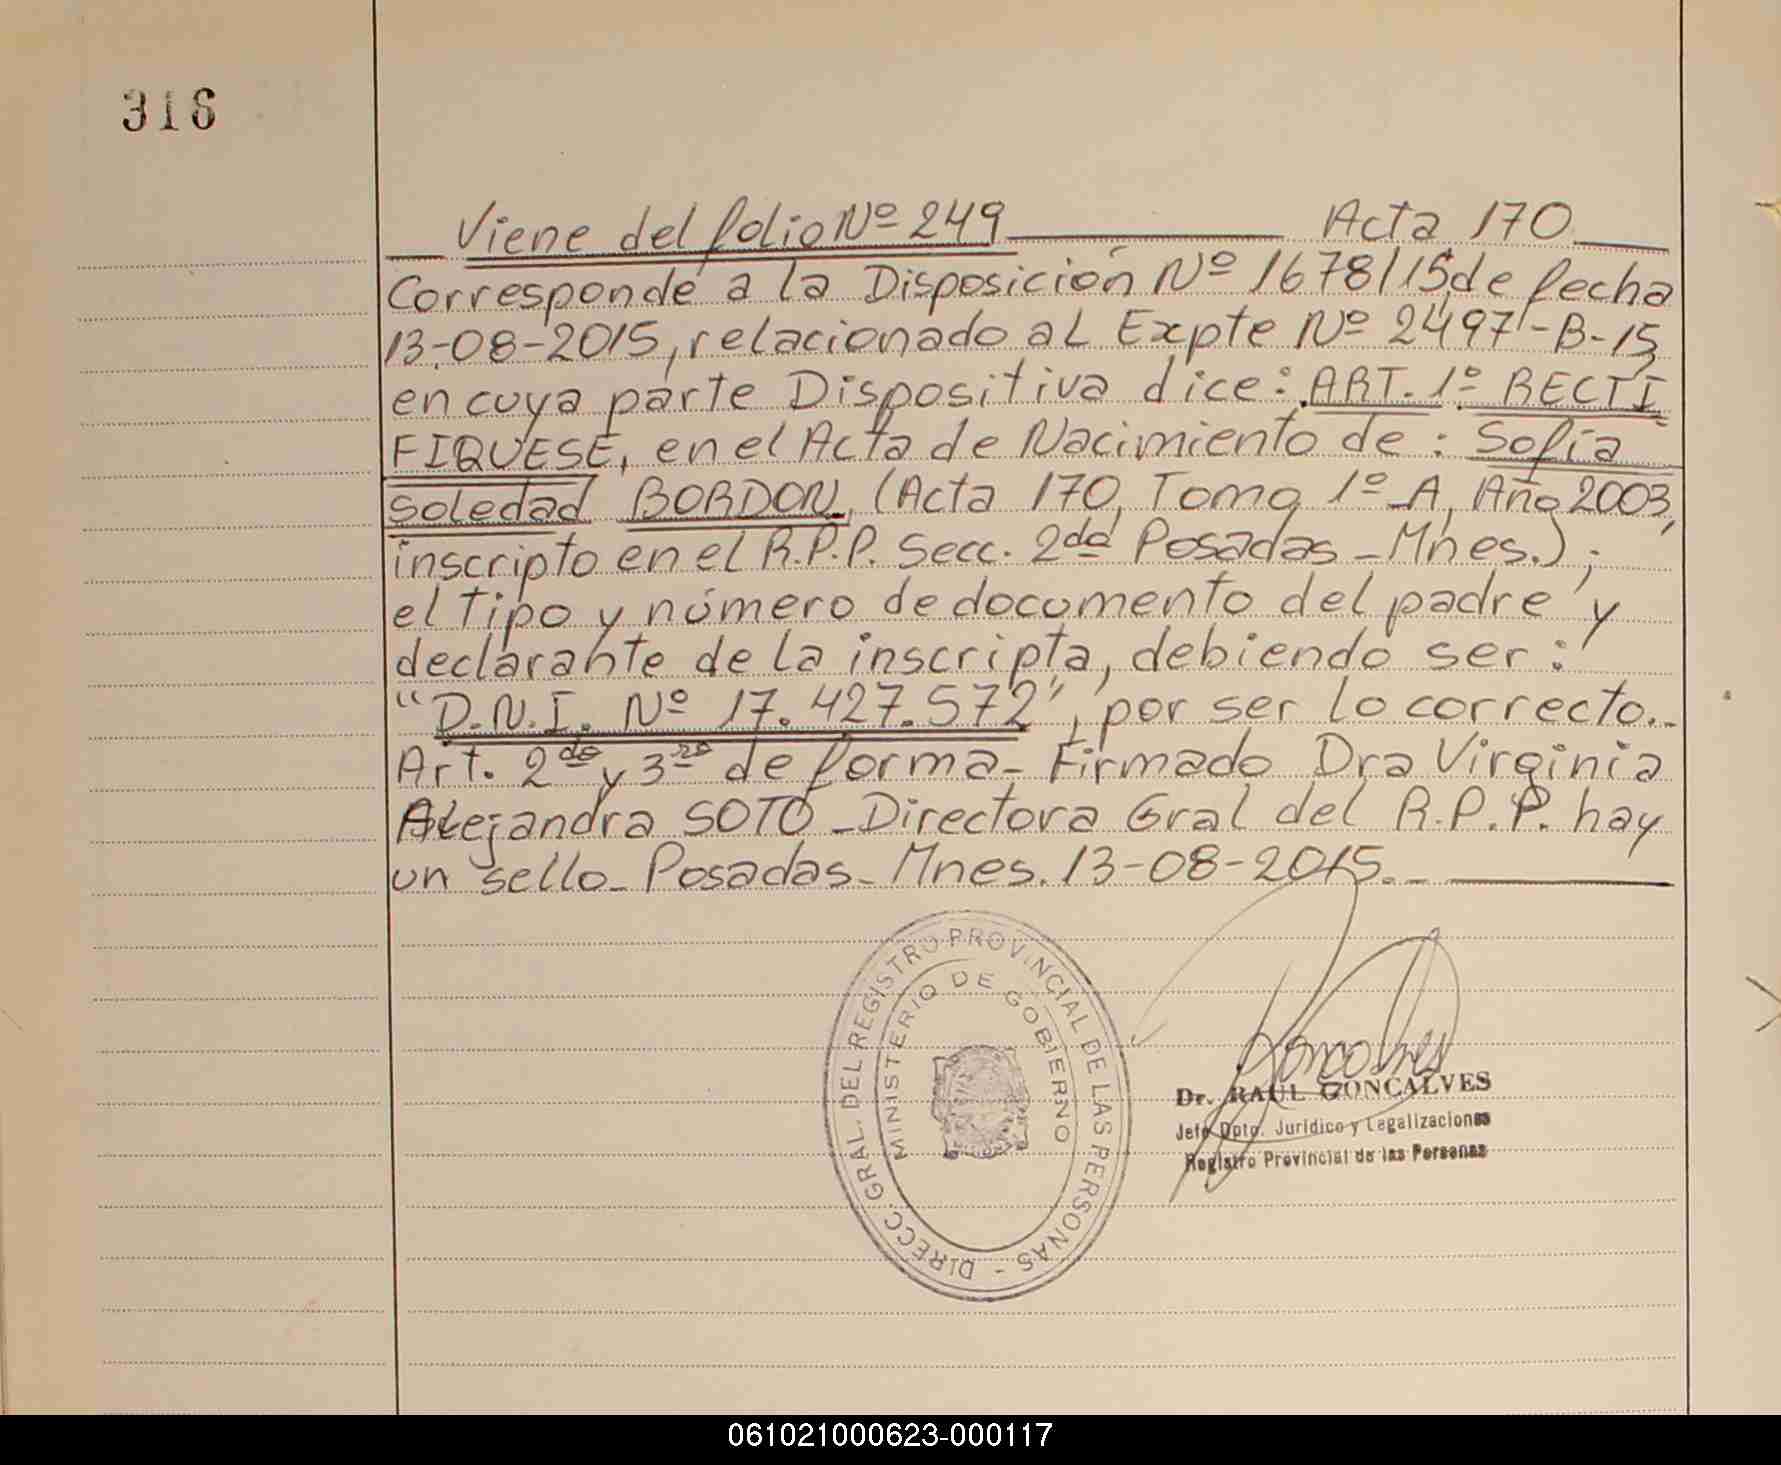 316
Viene del folio Nº 249 Acta 170
Corresponde a la Disposición Nº 1678/15, de fecha
13-08-2015, relacionado al Expte Nº 2497-B-15,
en cuya parte Dispositiva dice: ART. 1º RECTI
FIQUESE, en el Acta de Nacimiento de: Sofía
Soledad BORDON, (Acta 170, Tomo 1º A, Año 2003,
inscripto en el R.P.P. Secc. 2da Posadas - Mnes.),
el tipo y número de documento del padre y
declarante de la inscripta, debiendo ser:
"D.N.I. Nº 17.427.572", por ser lo correcto.-
Art. 2do y 3ro de forma - Firmado Dra Virginia
Alejandra SOTO - Directora Gral del R.P.P. hay
un sello - Posadas - Mnes. 13-08-2015.-
DIRECC. GRAL. DEL REGISTRO PROVINCIAL DE LAS PERSONAS -
MINISTERIO DE GOBIERNO
Goncalves
Dr. RAUL GONCALVES
Jefe Dpto. Jurídico y Legalizaciones
Registro Provincial de las Personas
061021000623-000117